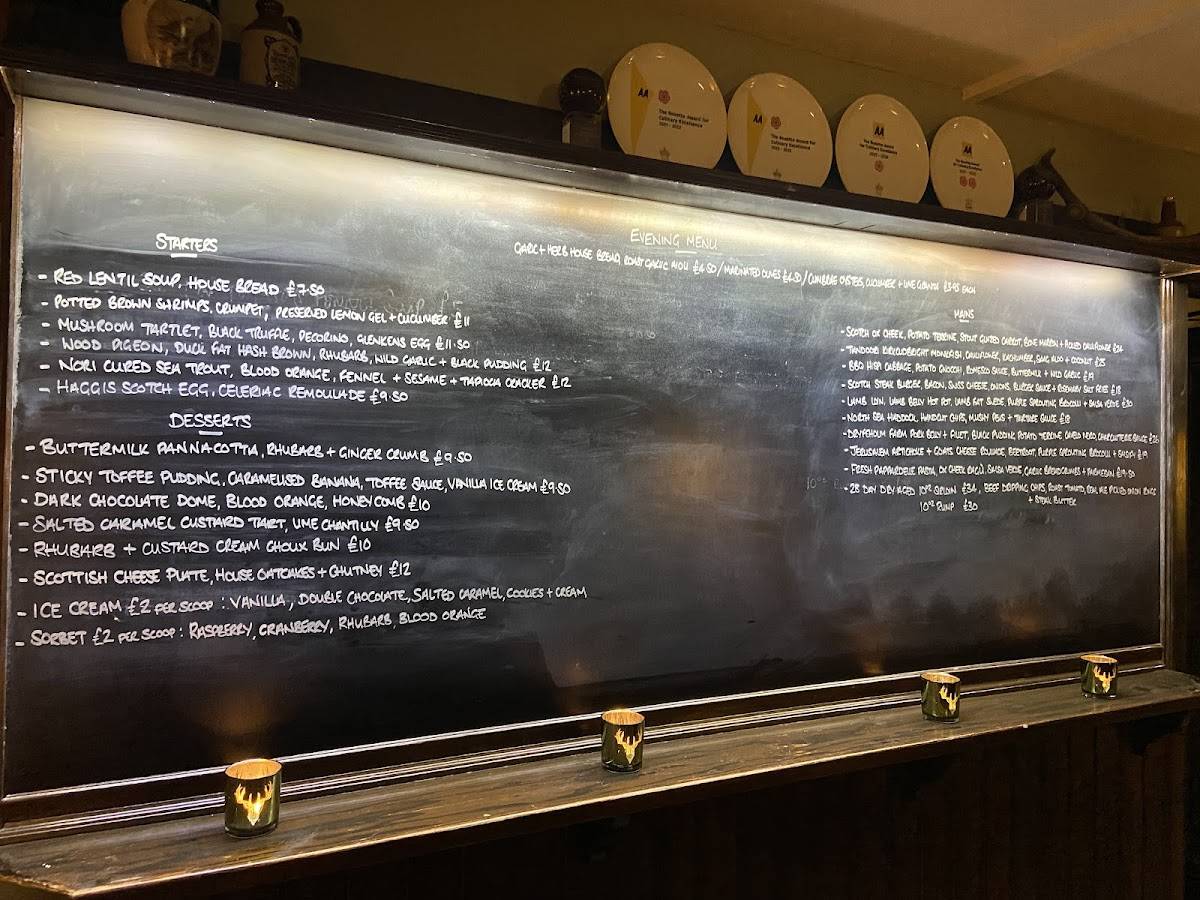 AA
The Rosette Award for
Culinary Excellence
AA
The Rosette Award for
Culinary Excellence
AA
The Rosette Award
for Culinary Excellence
AA
EVENING MENU
GARLIC + HERB HOUSE BREAD, ROAST GARLIC AIOLI £6.50 / MARINATED OLIVES £4.50 / CUMBRAE OYSTERS, CUCUMBER + LIME £3.95 EACH
STARTERS
- RED LENTIL SOUP, HOUSE BREAD £7.50
- POTTED BROWN SHRIMPS, CRUMPET, PRESERVED LEMON GEL + CUCUMBER £11
- MUSHROOM TARTLET, BLACK TRUFFLE, PECORINO, GLENKENS EGG £11.50
- WOOD PIGEON, DUCK FAT HASH BROWN, RHUBARB, WILD GARLIC + BLACK PUDDING £12
- NORI CURED SEA TROUT, BLOOD ORANGE, FENNEL + SESAME + TAPIOCA CRACKER £12
- HAGGIS SCOTCH EGG, CELERIAC REMOULADE £9.50
DESSERTS
- BUTTERMILK PANNACOTTA, RHUBARB + GINGER CRUMB £9.50
- STICKY TOFFEE PUDDING, CARAMELISED BANANA, TOFFEE SAUCE, VANILLA ICE CREAM £9.50
- DARK CHOCOLATE DOME, BLOOD ORANGE, HONEYCOMB £10
- SALTED CARAMEL CUSTARD TART, LIME CHANTILLY £9.50
- RHUBARB + CUSTARD CREAM CHOUX BUN £10
- SCOTTISH CHEESE PLATE, HOUSE OATCAKES + CHUTNEY £12
- ICE CREAM £2 PER SCOOP : VANILLA, DOUBLE CHOCOLATE, SALTED CARAMEL, COOKIES + CREAM
- SORBET £2 PER SCOOP : RASPBERRY, CRANBERRY, RHUBARB, BLOOD ORANGE
MAINS
- SCOTCH OX CHEEK, POTATO TERRINE, STOUT GLAZED CARROT, BONE MARROW + PICKLED CAULIFLOWER £24
- TANDOORI KIRKCUDBRIGHT MONKFISH, CAULIFLOWER, KACHUMBER, SAAG ALOO + COCONUT £25
- BBQ HISPI CABBAGE, POTATO GNOCCHI, ROMESCO SAUCE, BUTTERMILK + WILD GARLIC £19
- SCOTCH STEAK BURGER, BACON, SWISS CHEESE, ONIONS, BURGER SAUCE + ROSEMARY SALT FRIES £18
- LAMB LOIN, LAMB BELLY HOT POT, LAMB FAT SWEDE, PURPLE SPROUTING BROCCOLI + SALSA VERDE £30
- NORTH SEA HADDOCK, HANDCUT CHIPS, MUSHY PEAS + TARTARE SAUCE £18
- DRYFEHOLM FARM PORK BELLY + FILLET, BLACK PUDDING, POTATO TERRINE, CAVOLO NERO, CHARCUTERIE SAUCE £26
- JERUSALEM ARTICHOKE + GOATS CHEESE ROULADE, BEETROOT, PURPLE SPROUTING BROCCOLI + £19
- FRESH PAPPARDELLE PASTA, OX CHEEK RAGU, SALSA VERDE, GARLIC BREADCRUMBS + PARMESAN £19.50
- 28 DAY DRY AGED 10oz SIRLOIN £34, BEEF DRIPPING CHIPS, ROAST TOMATO, REAL ALE PICKLED ONION RINGS
10oz RUMP £30 + STEAK BUTTER